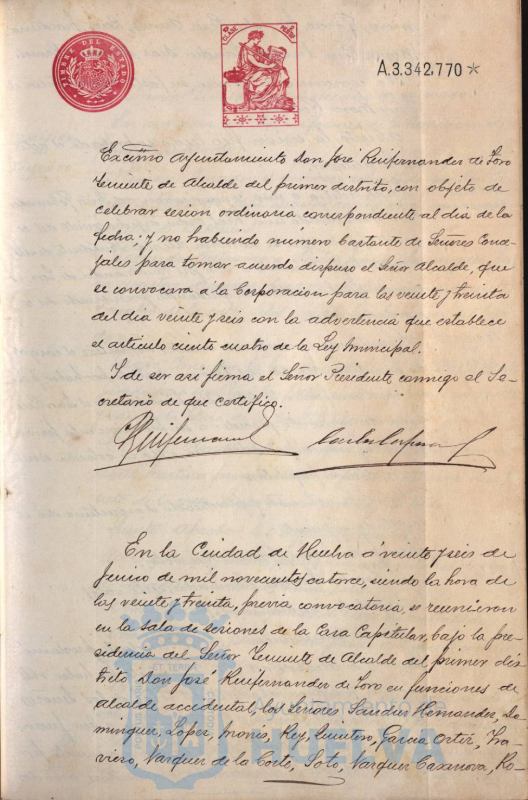 TIMBRE DEL ESTADO
A.3.342.770 *
Excmo Ayuntamiento Don José Ruifernandez de Toro
Teniente de Alcalde del primer distrito, con objeto de
celebrar sesion ordinaria correspondiente al dia de la
fecha; y no habiendo número bastante de Señores Conce-
jales para tomar acuerdo dispuso el Señor Alcalde, que
se convocara á la Corporacion para las veinte y treinta
del dia veinte y seis con la advertencia que establece
el articulo ciento cuatro de la Ley Municipal.
Y de ser asi firma el Señor Presidente conmigo el Se-
cretario de que certifico.
En la Ciudad de Huelva á veinte y seis de
Junio de mil novecientos catorce, siendo la hora de
las veinte y treinta, previa convocatoria, se reunieron
en la sala de sesiones de la Casa Capitular, bajo la pre-
sidencia del Señor Teniente de Alcalde del primer dis-
trito Don José Ruifernandez de Toro en funciones de
alcalde accidental, los Señores Sanchez Hernandez, Do-
minguez, Lopez, Rey, Quintero, Garcia Ortiz, Tra-
viero, Vazquez de la Corte, Soto, Vazquez Casanova, Ro-
Ayuntamiento de
HUELVA